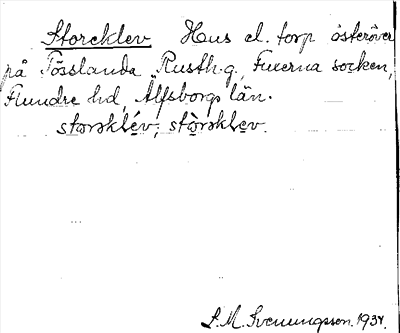 Storeklev Hus el. torp österöver
på Tösslanda Rusth.g. Fuxerna socken,
Flundre hd, Älfsborgs län.
storsklév, stòrsklev.
S.M. Svenungsson. 1934.